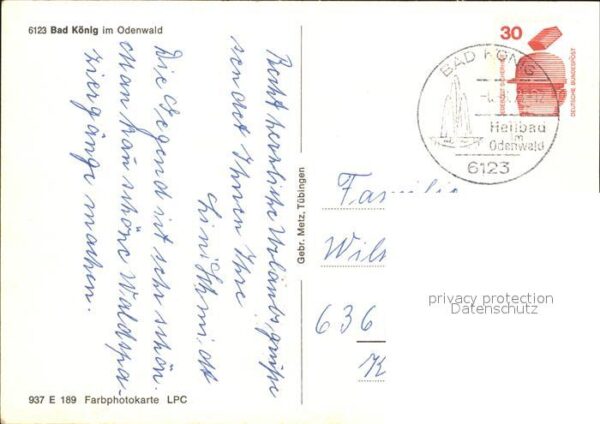 6123 Bad König im Odenwald
Recht herrliche Urlaubsgrüße
sendet Ihnen Ihre
Lini Schmidt
Die Gegend ist sehr schön.
Man kann schöne Waldspa-
ziergänge machen.
937 E 189 Farbphotokarte LPC
Gebr. Metz, Tübingen
30
DEUTSCHE BUNDESPOST
BAD KÖNIG
Heilbad
im
Odenwald
6123
Familie
Wil
636
K
privacy protection
Datenschutz